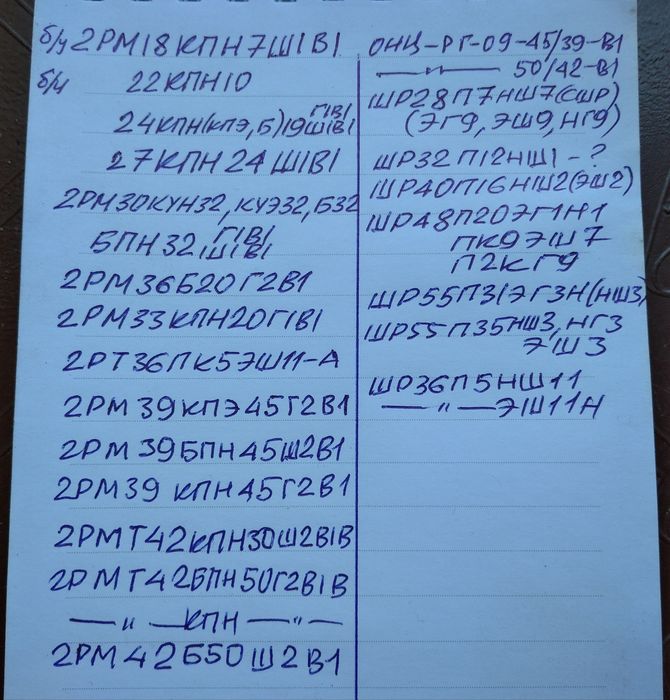 б/у 2РМ18КПН7Ш1В1
б/у 22КПН10
24КПН(КПЭ,Б)19Г1В1
Ш1В1
27КПН24Ш1В1
2РМ30КУН32, КУЭ32, Б32
БПН32 Г1В1
Ш1В1
2РМ36Б20Г2В1
2РМ33КПН20Г1В1
2РТ36ПК5ЭШ11-А
2РМ39КПЭ45Г2В1
2РМ39БПН45Ш2В1
2РМ39 КПН45Г2В1
2РМТ42КПН30Ш2В1В
2РМТ42БПН50Г2В1В
—"— КПН —"—
2РМ42Б50Ш2В1
ОНЦ-РГ-09-45/39-В1
—"— 50/42-В1
ШР28П7НШ7(СШР)
(ЭГ9, ЭШ9, НГ9)
ШР32П12НШ1-?
ШР40П16НШ2(ЭШ2)
ШР48П20ЭГ1Н1
ПК9ЭШ7
П2КГ9
ШР55П31ЭГ3Н(НШ3)
ШР55П35НШ3, НГ3
ЭШ3
ШР36П5НШ11
—"— ЭШ11Н